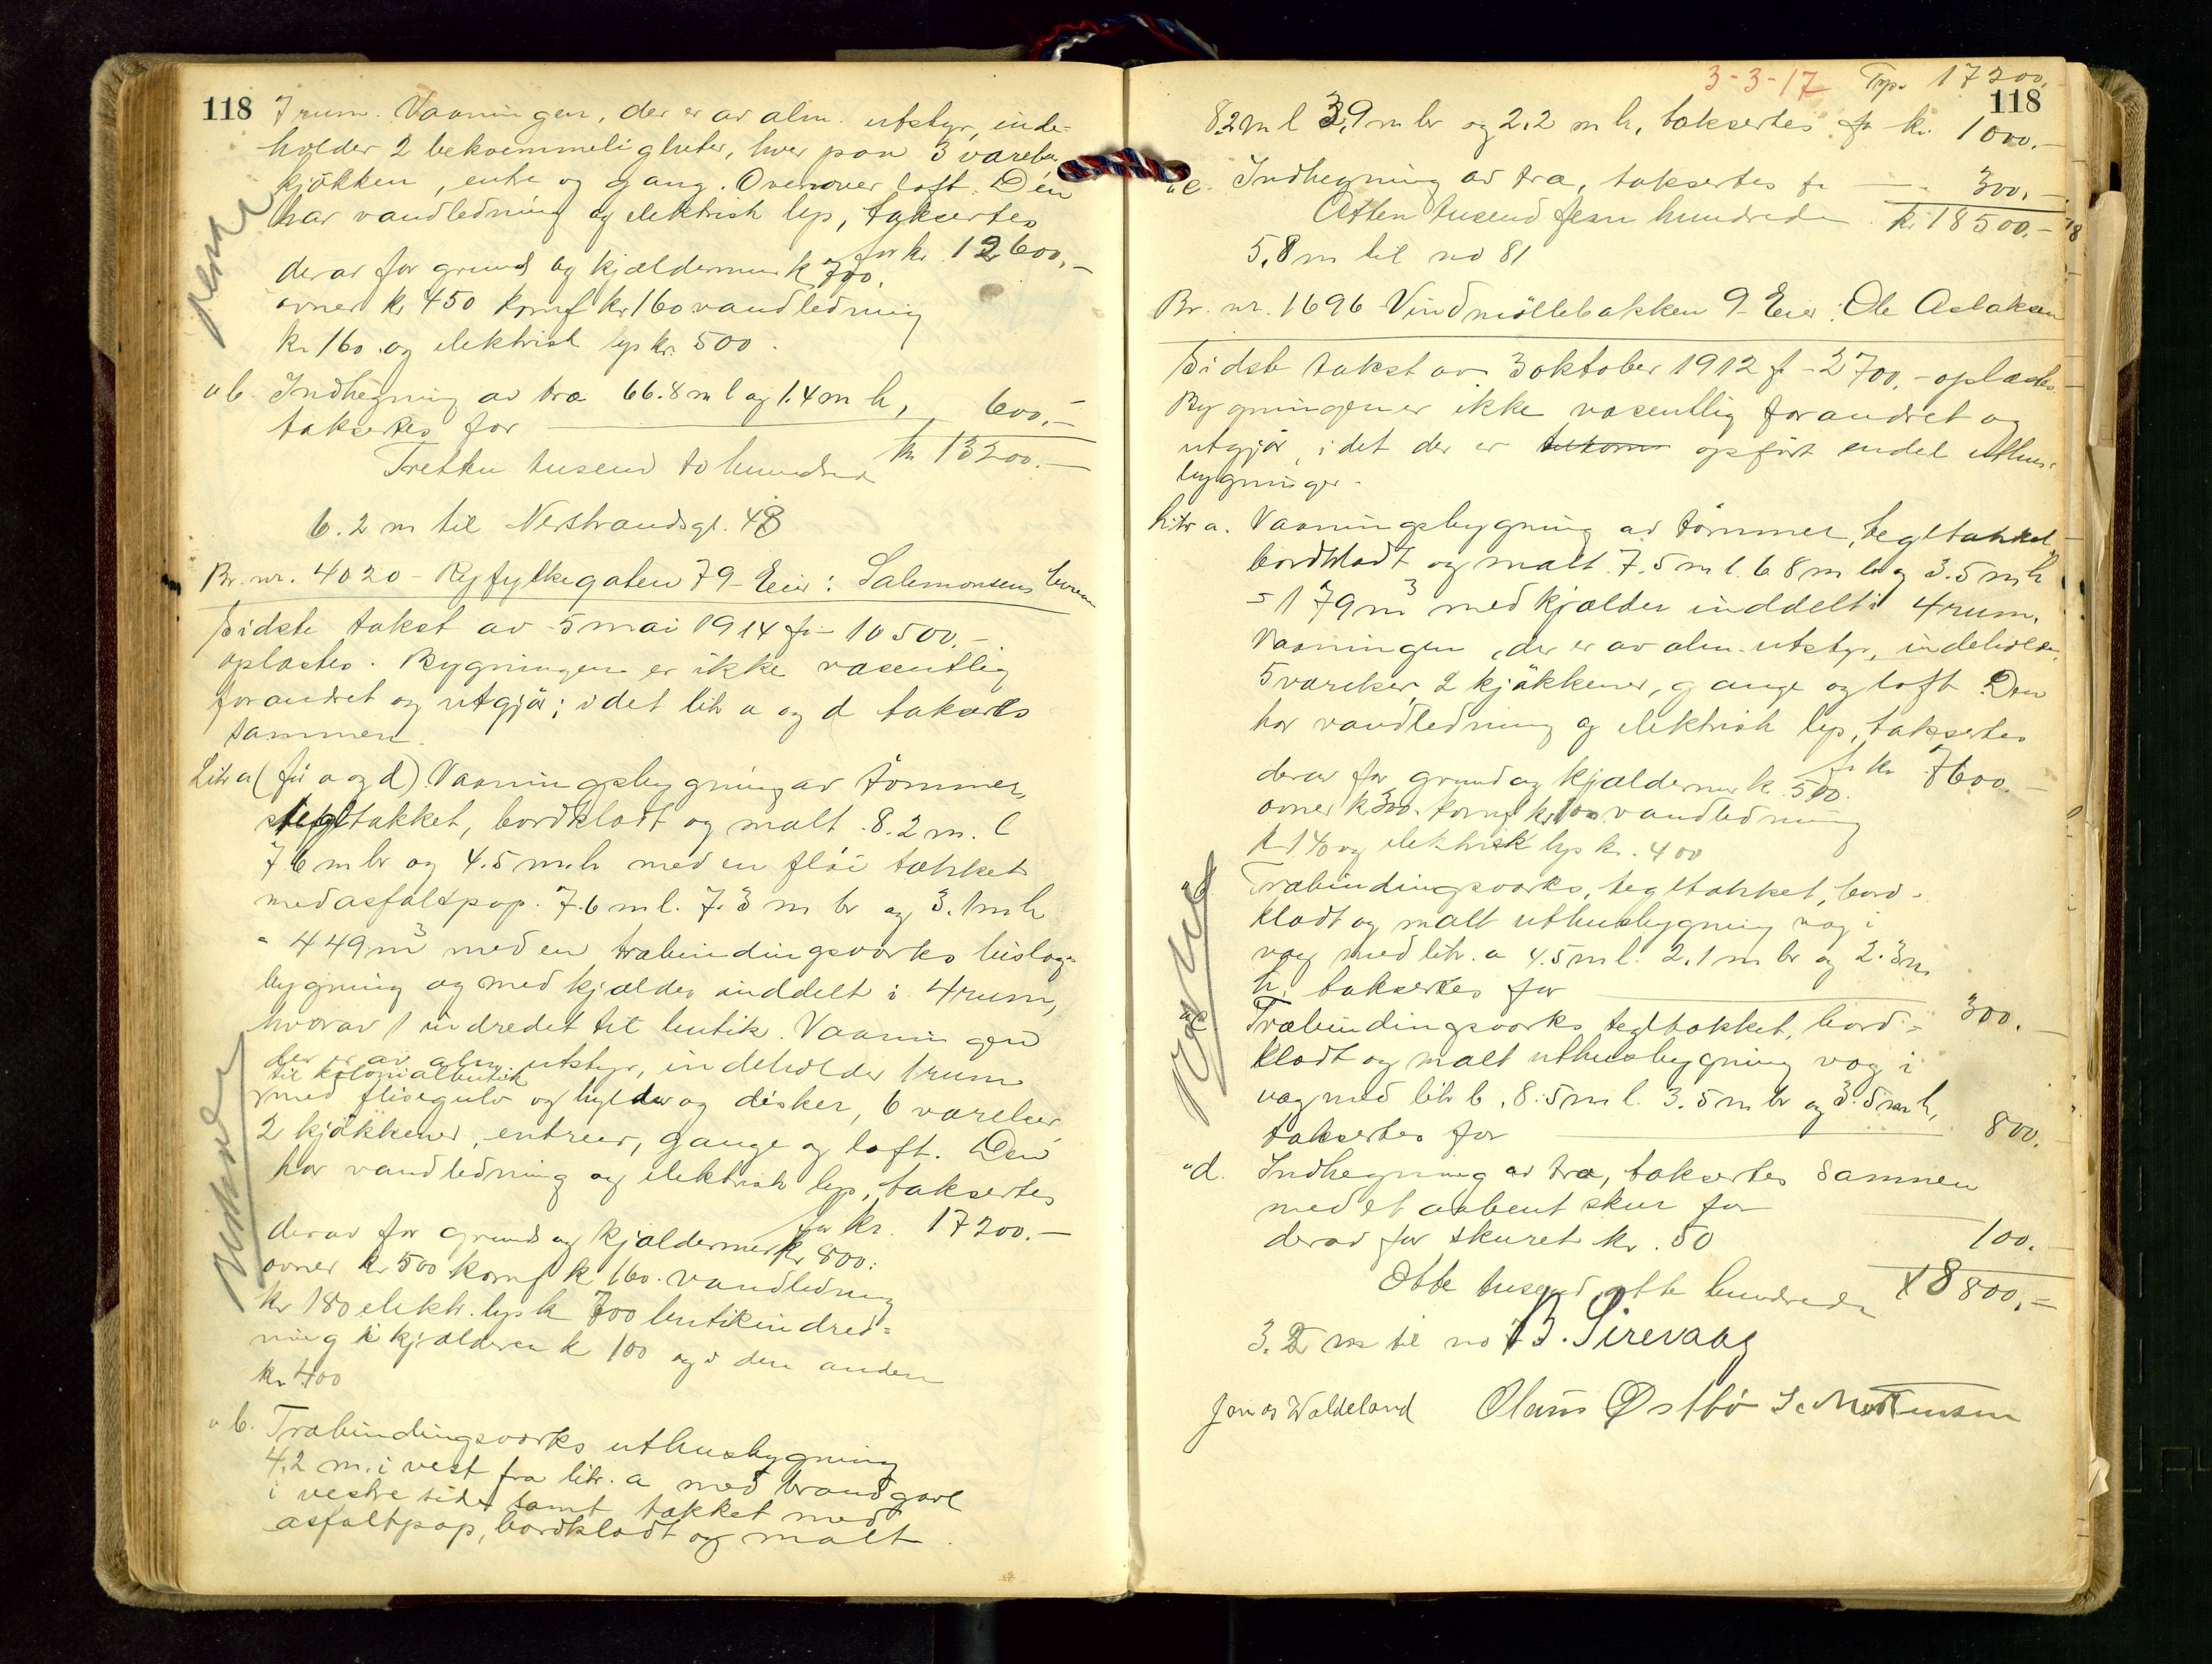 118
7 rum. Vaaningen, der er av alm. utstyr, inde=
holder 2 bekvemmeligheter, hver paa 3 værelser
kjökken, entre og gang. Ovenover loft. Den
har vandledning og elektrisk lys, taksertes
for kr. 12600,-
derav for grund og kjældermur k 700.
ovner kr 450 komf kr 160 vandledning
kr 160 og elektrisk lys kr. 500.
" b. Indhegning av træ 66.8 m l og 1.4 m h,
taksertes for 600,-
Tretten tusend to hundrede kr 13200.-
6.2 m til Nerstrandsgt. 48
Br. nr. 4020 - Ryfylkegaten 79 - Eier: Salomonsens
Sidste takst av 5 mai 1914 fr - 10500,-
oplæstes. Bygningen er ikke væsentlig
forandret og utgjör; idet litr a og d takseres
sammen.
Litr a (för a og d) Vaaningsbygning av tömmer,
tegltækket, bordklædt og malt. 8.2 m. l
7.6 m br og 4.5 m h med en flöi tækket
med asfaltpap. 7.6 m l. 7.3 m br og 3.1 m h
= 449 m³ med en træbindingsværks bislag=
bygning og med kjælder inddelt i 4 rum,
hvorav 1 indredet til butik. Vaaningen
der er av alm utstyr, indeholder 1 rum
til kolonialbutik
med flisegulv og hylder og disker, 6 værelser,
2 kjökkener, entreer, gange og loft. Den
har vandledning og elektrisk lys, taksertes
for kr. 17200.-
derav for grund og kjældermur kr 800.
ovner kr 500 komf k 160. vandledning
kr 180 elektr. lys k 700 butikindred=
ning i kjælderen k 100 og i den anden
kr 400
" b. Træbindingsværks uthusbygning
4.2 m. i vest fra litr. a med brandgavl
i vestre side samt tækket med
asfaltpap, bordklædt og malt
3-3-17 Trp. 17200,
118
8.2 m l 3,9 m br og 2.2 m h, taksertes fr kr. 1000.-
" c. Indhegning av træ, taksertes fr 300,-
Atten tusend fem hundrede kr 18500.-
5,8 m til no 81
Br. nr. 1696 Vindmöllebakken 9 - Eier: Ole Aslaksen
Sidste takst av 3 oktober 1912 fr - 2700,- oplæstes
Bygningen er ikke væsentlig forandret og
utgjör, idet der er opfört endel uthus=
bygninger.
Litr a. Vaaningsbygning av tömmer, tegltækket,
bordklædt og malt 7.5 m l. 6.8 m br og 3.5 m h
= 179 m³ med kjælder inddelt i 4 rum.
Vaaningen, der er av alm. utstyr, indeholder
5 værelser, 2 kjökkener, gange og loft Den
har vandledning og elektrisk lys, taksertes
fr kr 7600.-
derav for grund og kjældermur k. 500.
ovner k 300. komf kr 100 vandledning
k 140 og elektrisk lys kr. 400
" b Træbindingsværks, tegltækket, bord=
klædt og malt uthusbygning væg i
væg med litr. a 4.5 m l. 2.1 m br og 2.3 m
h, taksertes for 300.-
" c Træbindingsværks tegltækket, bord=
klædt og malt uthusbygning væg i
væg med litr b. 8.5 m l. 3.5 m br og 3.5 m h,
taksertes for 800.
" d. Indhegning av træ, taksertes sammen
med et aapent skur for 100.-
derav for skuret kr. 50
Otte tusend otte hundrede kr 8800,-
3.2 m til no
B. Sirevaag
Jonas Waldeland Olaus Østbö I. Mortensen